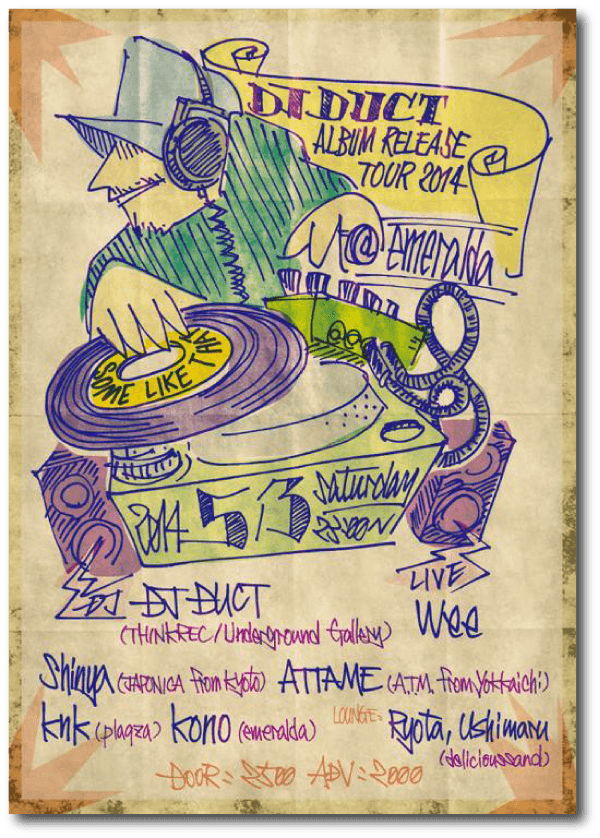 DJ DUCT
ALBUM RELEASE
TOUR 2014
@ emeralda
SOME LIKE THAT
2014 5 3 Saturday
23:00~
DJ DJ DUCT
(THINKREC / Underground Gallery)
LIVE
Wee
Shinya (JAPONICA from Kyoto) ATTAME (A.T.M. from Yokkaichi)
knk (plaqza) kono (emeralda) LOUNGE: Ryota, Ushimaru
(delicioussand)
DOOR = 2500 ADV = 2000